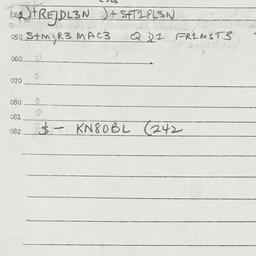 )+REJDL3N )+S+T1PL3N
050 S+M,R3 MAC3 Q D1 FR1MST3
060 0
070 0
080 0
081 0
082 $- KN80BL (242